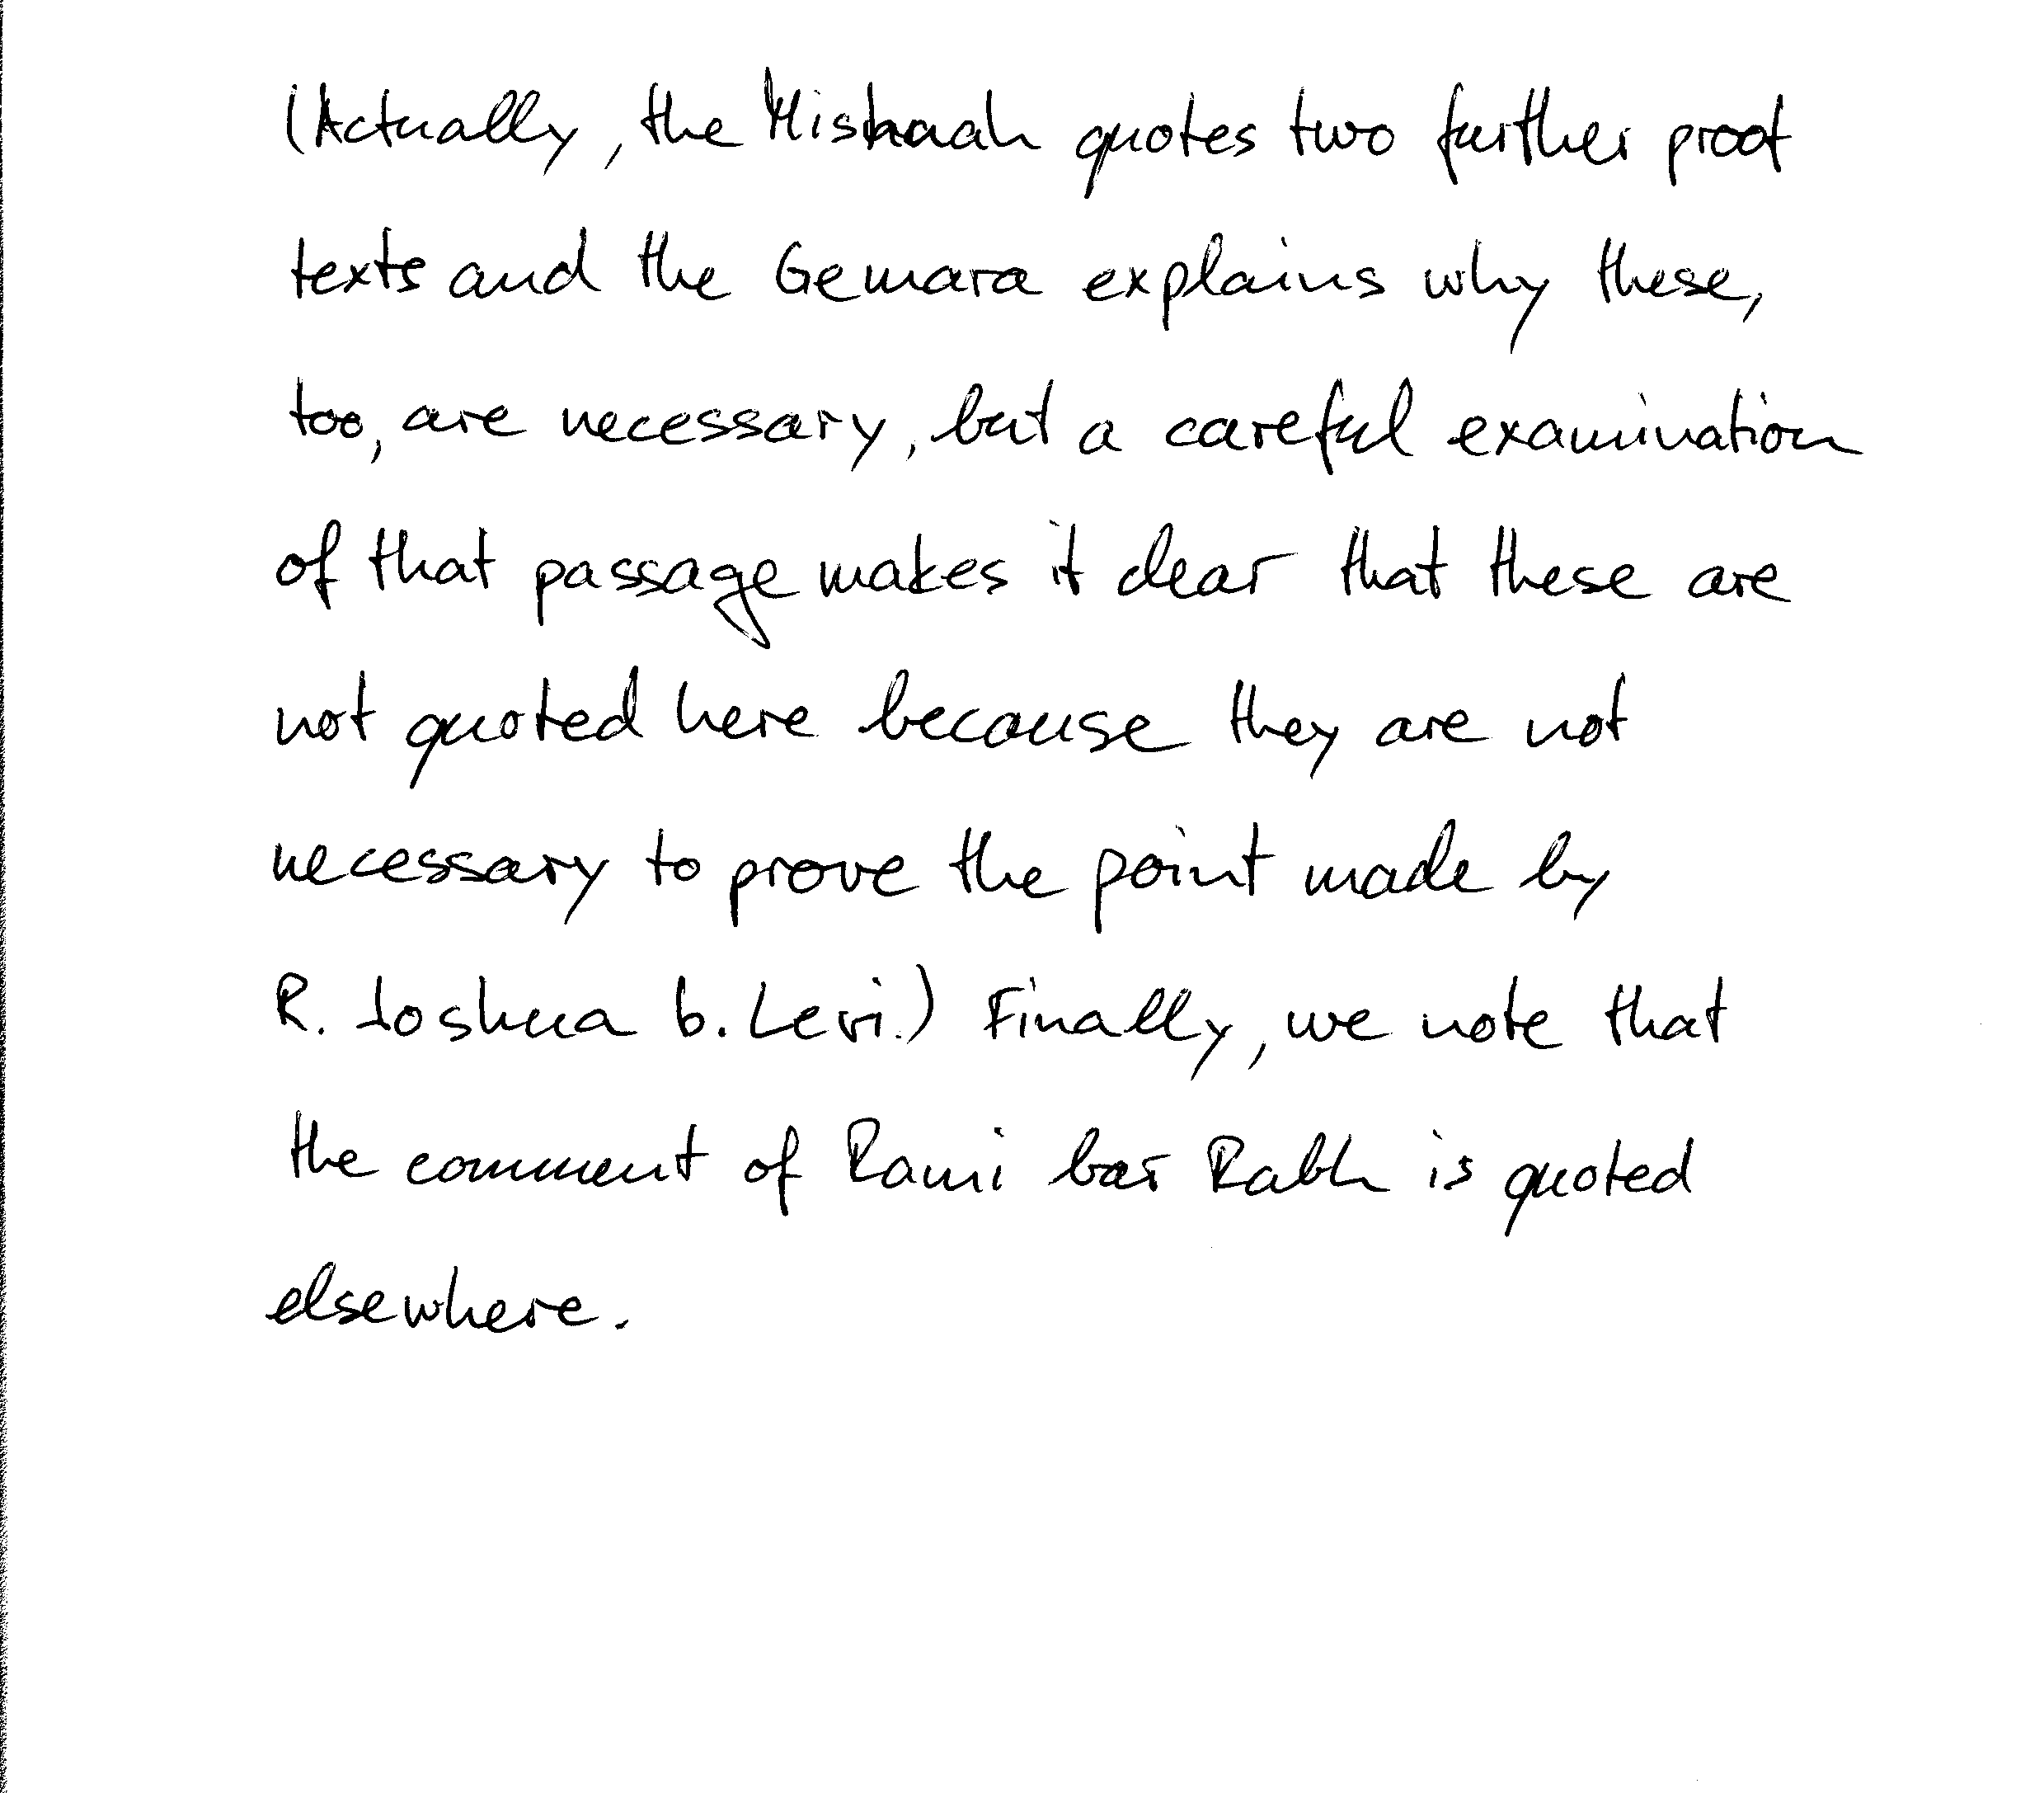 (Actually, the Mishnah quotes two further proof
texts and the Gemara explains why these,
too, are necessary, but a careful examination
of that passage makes it clear that these are
not quoted here because they are not
necessary to prove the point made by
R. Joshua b. Levi.) Finally, we note that
the comment of Rami bar Rabh is quoted
elsewhere.